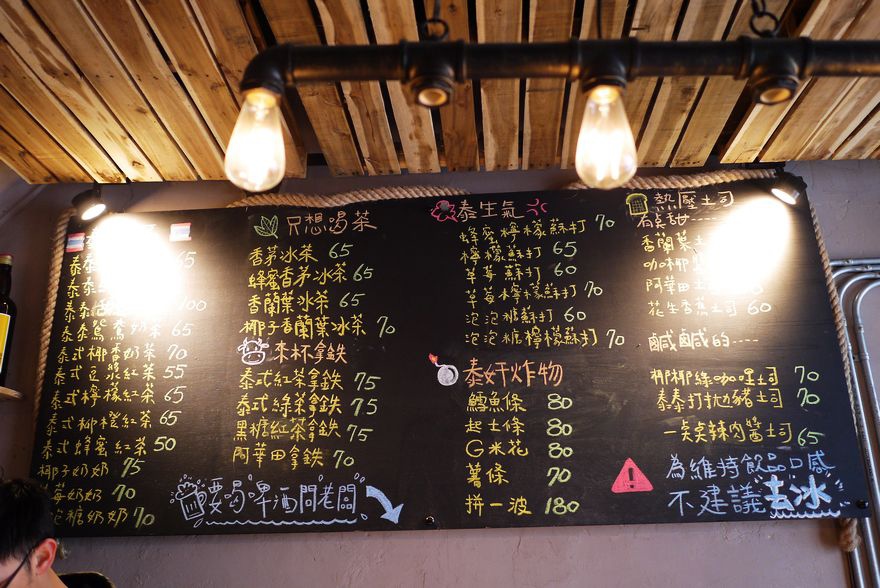 泰
泰
泰
泰 100
泰式鴛鴦奶茶 65
泰式椰香奶茶 70
泰式豆漿紅茶 55
泰式檸檬紅茶 65
泰式椰糖紅茶 65
泰式蜂蜜紅茶 50
椰子奶奶 75
莓奶奶 70
糖奶奶 70
只想喝茶
香茅冰茶 65
蜂蜜香茅冰茶 65
香蘭葉冰茶 65
椰子香蘭葉冰茶 70
來杯拿鐵
泰式紅茶拿鐵 75
泰式綠茶拿鐵 75
黑糖紅茶拿鐵 75
阿華田拿鐵 70
要喝啤酒問老闆
泰生氣
蜂蜜檸檬蘇打 70
檸檬蘇打 65
草莓蘇打 60
草莓檸檬蘇打 70
泡泡糖蘇打 60
泡泡糖檸檬蘇打 70
泰奸炸物
鱈魚條 80
起士條 80
G米花 80
薯條 70
拼一波 180
熱壓土司
有點甜----
香蘭葉土
咖椰
阿華田
花生香蕉土司 60
鹹鹹的----
椰椰綠咖哩土司 70
泰泰打拋豬土司 70
一点点辣肉醬土司 65
為維持飲品口感
不建議去冰